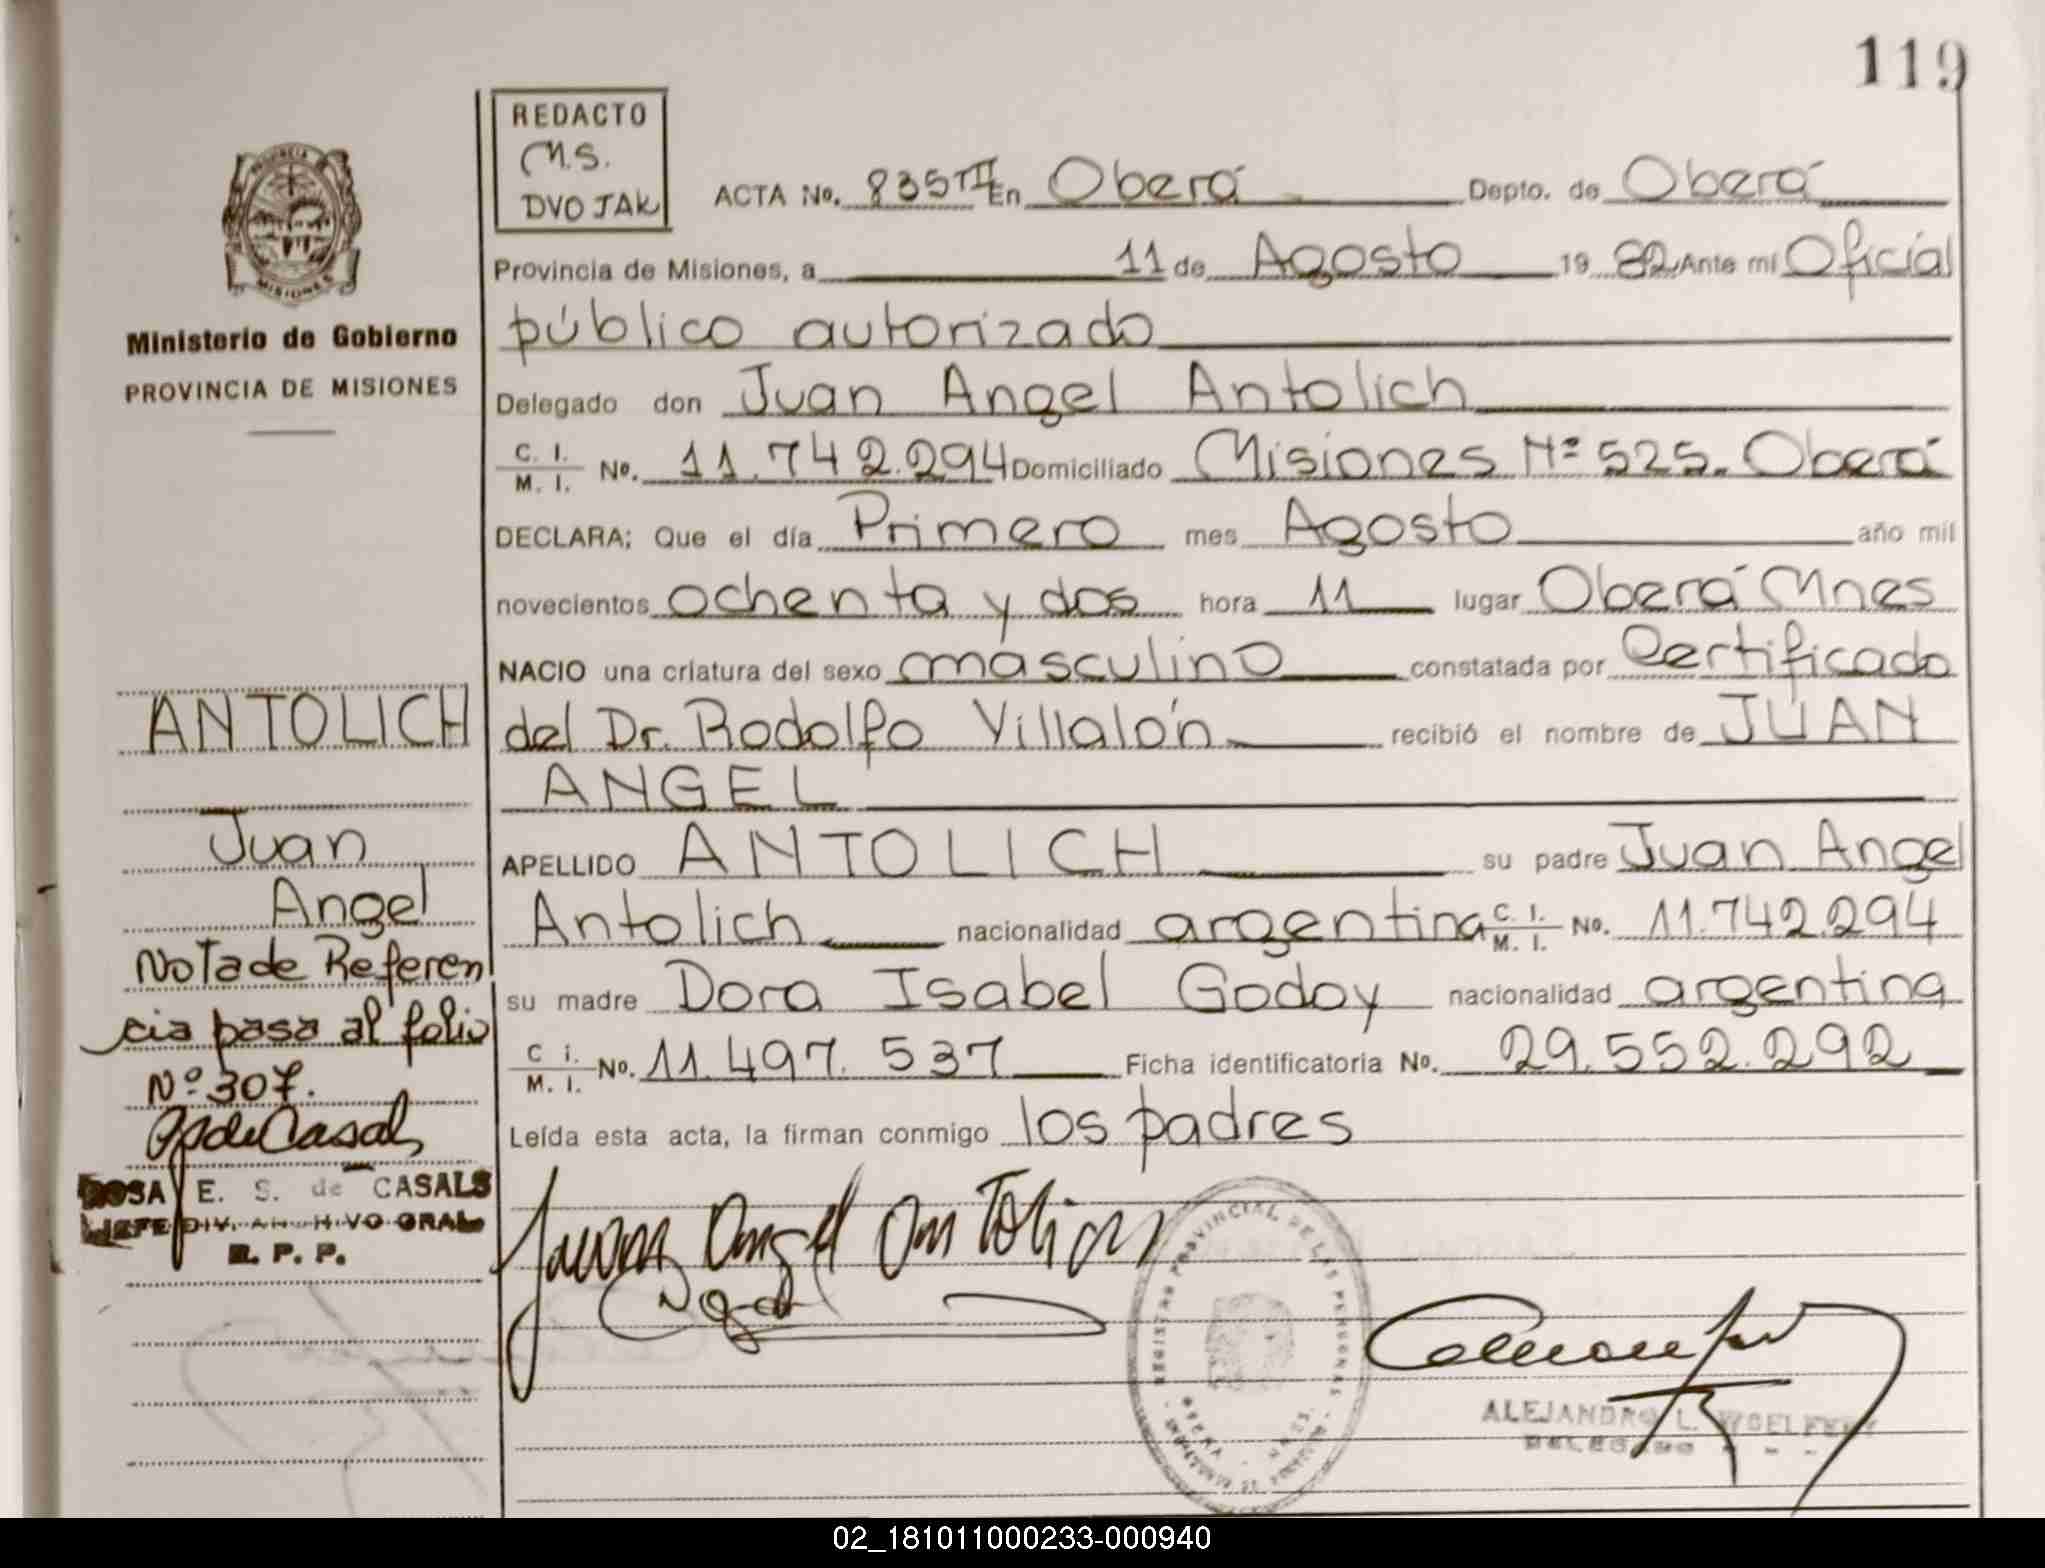 119
REDACTO
M.S.
DVOJAK
ACTA No. 835 TII En Oberá Depto. de Oberá
Provincia de Misiones, a 11 de Agosto 19 82 Ante mi Oficial
público autorizado
Delegado don Juan Angel Antolich
C. I. / M. I. No. 11.742.294 Domiciliado Misiones Nº 525. Oberá
DECLARA; Que el día Primero mes Agosto año mil
novecientos ochenta y dos hora 11 lugar Oberá Mnes
NACIO una criatura del sexo masculino constatada por Certificado
del Dr. Rodolfo Villalón recibió el nombre de JUAN
ANGEL
APELLIDO ANTOLICH su padre Juan Angel
Antolich nacionalidad argentina C. I. / M. I. No. 11.742.294
su madre Dora Isabel Godoy nacionalidad argentina
C i. / M. I. No. 11.497.537 Ficha identificatoria No. 29.552.292
Leída esta acta, la firman conmigo los padres
Juan Angel Antolich
REGISTRO PROVINCIAL DE LAS PERSONAS
OBERA - MNES.
ALEJANDRO L.
DELEGADO
PROVINCIA
MISIONES
Ministerio de Gobierno
PROVINCIA DE MISIONES
ANTOLICH
Juan
Angel
Nota de Referen
cia pasa al folio
Nº 307.
ROSA E. S. de CASALS
JEFE DIV. ARCHIVO GRAL
R. P. P.
02_181011000233-000940